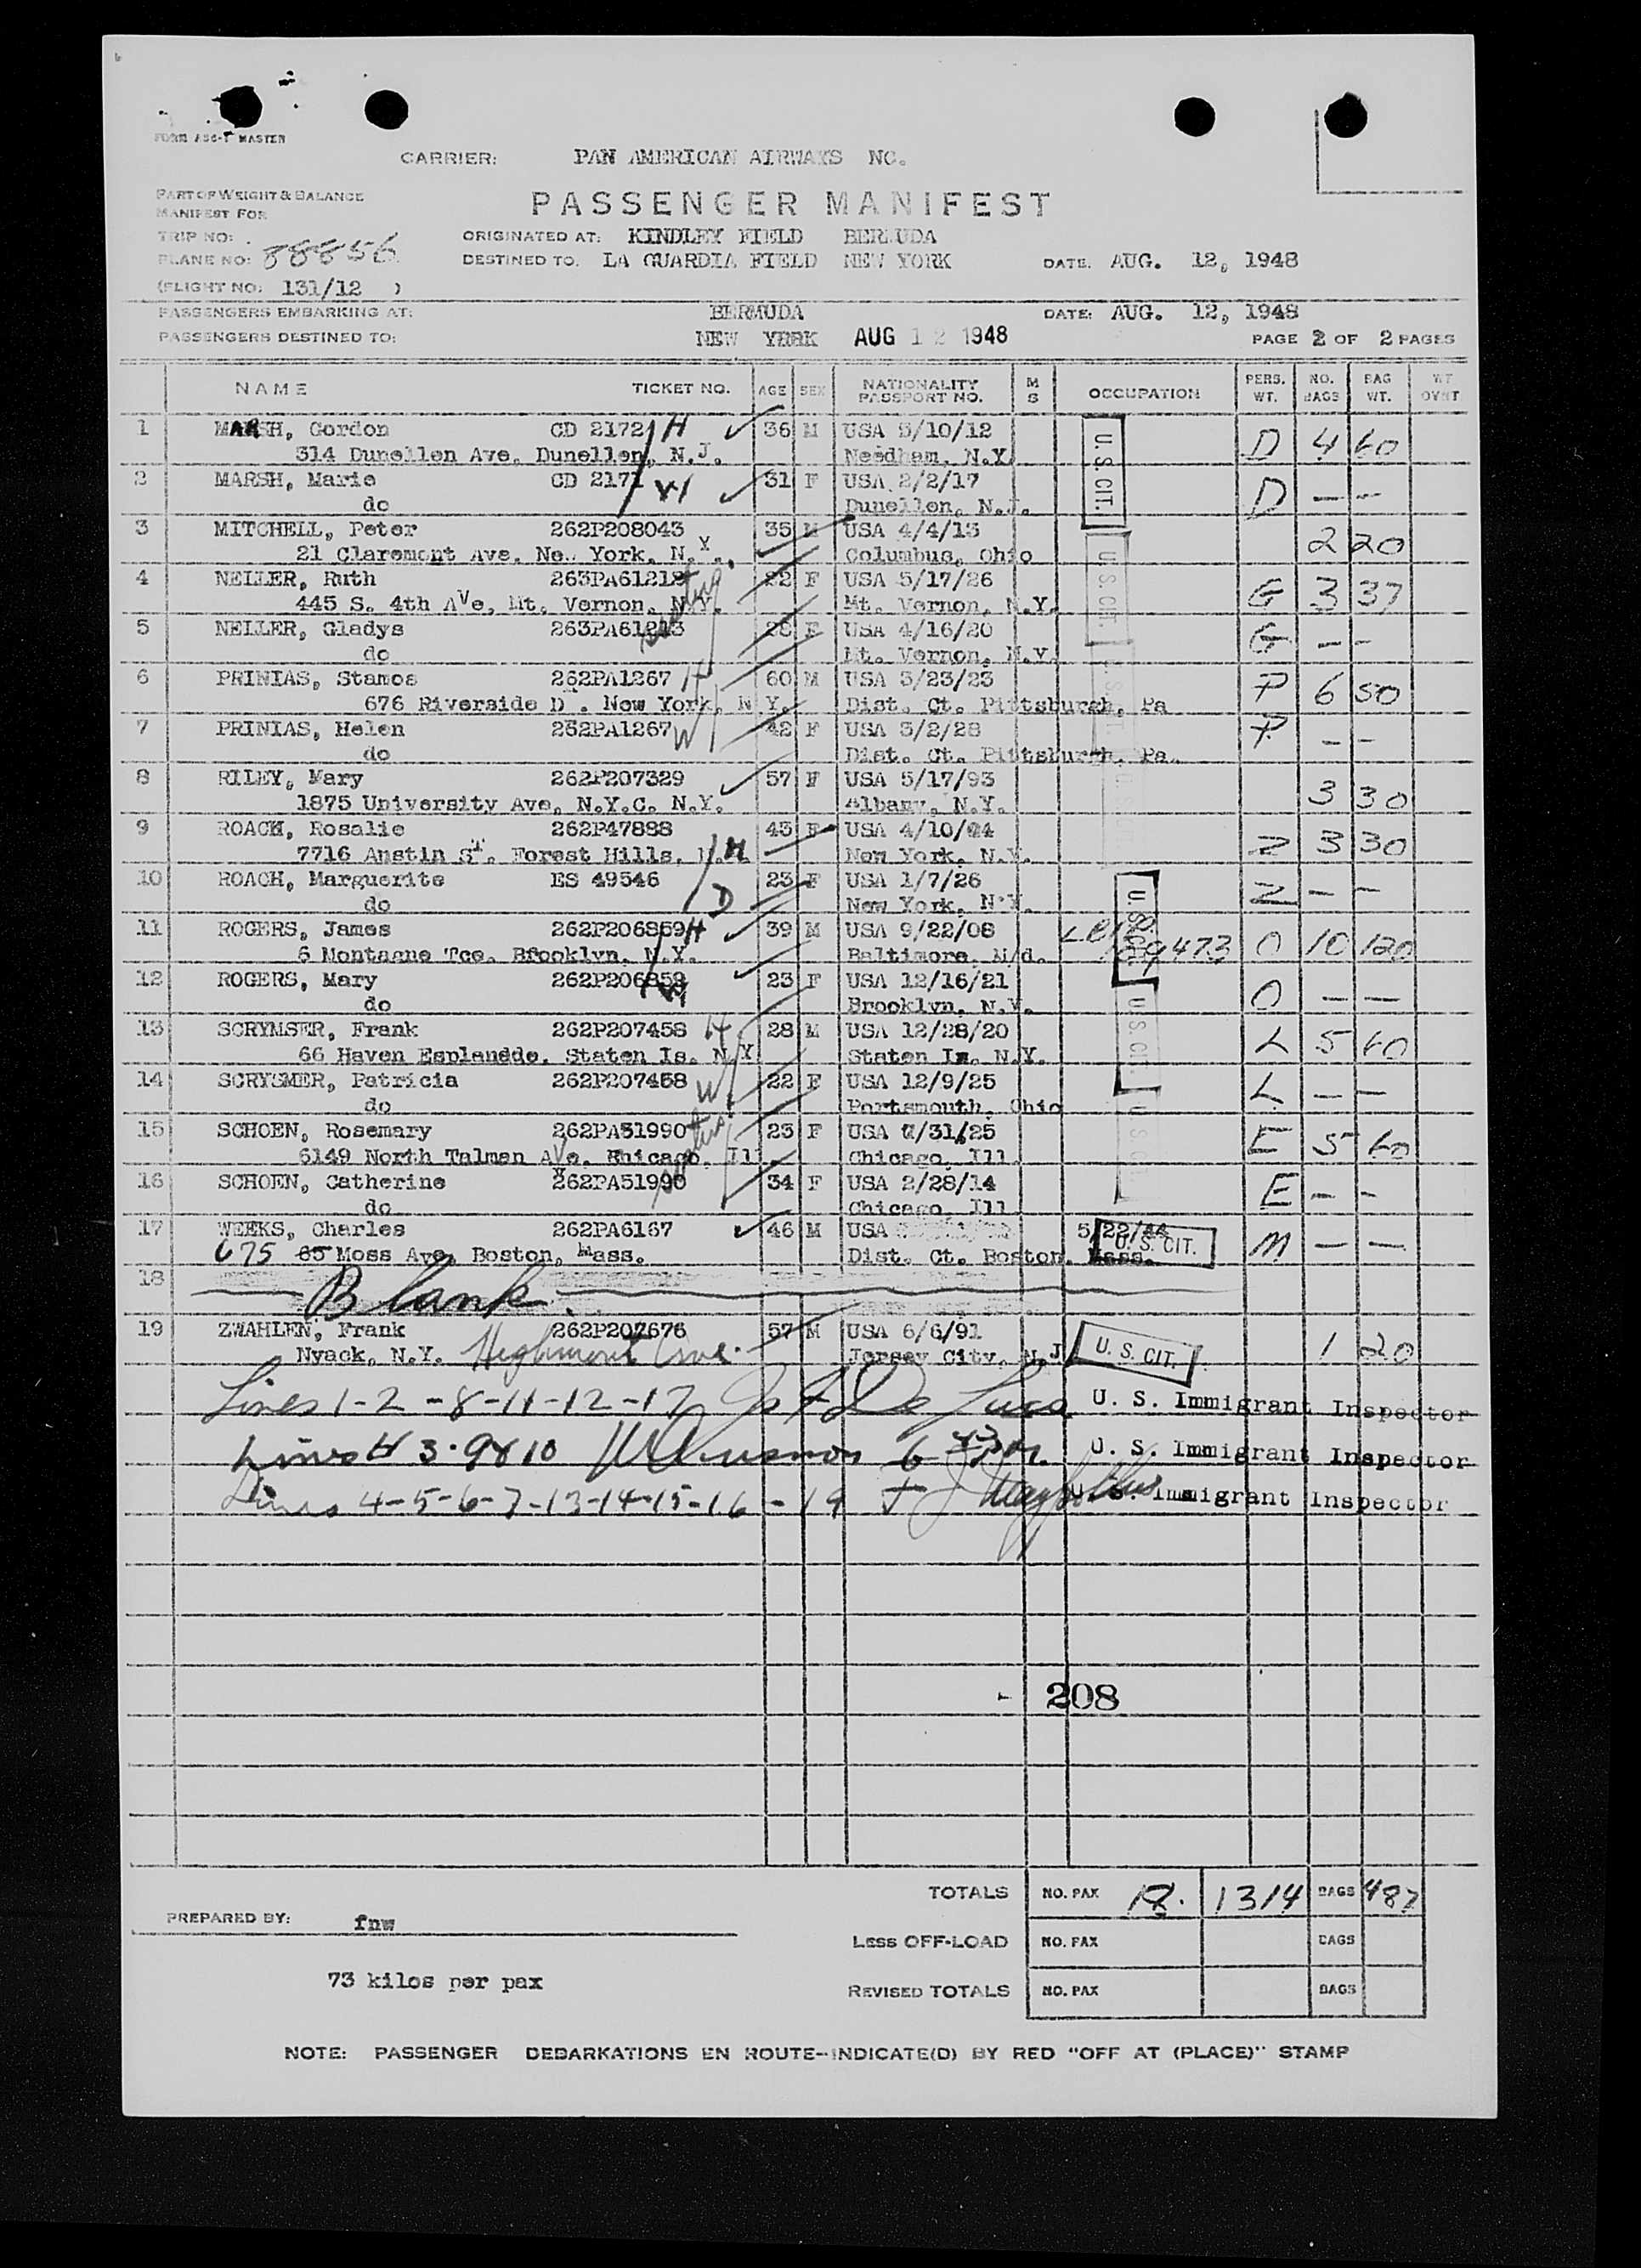 FORM ASC-T MASTER
CARRIER: PAN AMERICAN AIRWAYS NC.
PART OF WEIGHT & BALANCE
MANIFEST FOR
PASSENGER MANIFEST
TRIP NO:
PLANE NO: 88856
ORIGINATED AT: KINDLEY FIELD BERMUDA
DESTINED TO. LA GUARDIA FIELD NEW YORK DATE. AUG. 12, 1948
(FLIGHT NO: 131/12 )
PASSENGERS EMBARKING AT: BERMUDA DATE: AUG. 12, 1948
PASSENGERS DESTINED TO: NEW YORK AUG 12 1948 PAGE 2 OF 2 PAGES
NAME TICKET NO. AGE SEX NATIONALITY PASSPORT NO. M S OCCUPATION PERS. WT. NO. BAGS BAG WT. WT OVHT
1 MARSH, Gordon CD 2172 H 36 M USA 5/10/12 U.S. CIT. D 4 60
314 Dunellen Ave. Dunellen, N.J. Needham, N.Y.
2 MARSH, Marie CD 2171 W 31 F USA 2/2/17 D — --
do Dunellen, N.J.
3 MITCHELL, Peter 262P208043 35 M USA 4/4/13 2 20
21 Claremont Ave. Ne.. York, N.Y. Columbus, Ohio U.S. Cit.
4 NELLER, Ruth 263PA61212 22 F USA 5/17/26 G 3 37
445 S. 4th AVe, Mt. Vernon, N.Y. Mt. Vernon, N.Y.
5 NELLER, Gladys 263PA61213 28 F USA 4/16/20 G — --
do Mt. Vernon, N.Y.
6 PRINIAS, Stamos 262PA1267 H 60 M USA 5/23/23 P 6 50
676 Riverside D . New York, N Y. Dist. Ct. Pittsburgh, Pa
7 PRINIAS, Helen 262PA1267 W 42 F USA 3/2/28 P — --
do Dist. Ct. Pittsburgh, Pa.
8 RILEY, Mary 262P207329 57 F USA 5/17/93 3 30
1875 University Ave, N.Y.C. N.Y. Albany, N.Y.
9 ROACH, Rosalie 262P47888 43 F USA 4/10/04 Z 3 30
7716 Austin ST. Forest Hills, M New York, N.Y.
10 ROACH, Marguerite ES 49546 D 23 F USA 1/7/26 Z — —
do New York, N.Y.
11 ROGERS, James 262P206859 H 39 M USA 9/22/08 U.S. CIT. 89473 O 10 120
6 Montague Tce. Brooklyn, N.Y. Baltimore, M/d.
12 ROGERS, Mary 262P206859 W 23 F USA 12/16/21 O — —
do Brooklyn, N.Y.
13 SCRYMSER, Frank 262P207458 H 28 M USA 12/28/20 U.S. CIT. L 5 60
66 Haven Esplandde. Staten Is. N.Y. Staten Is. N.Y.
14 SCRYSMER, Patricia 262P207458 W 22 F USA 12/9/25 L — —
do Portsmouth, Ohio
15 SCHOEN, Rosemary 262PA51990 23 F USA 7/31/25 U S C E 5 60
6149 North Talman AVe. Khicago, Ill. Chicago, Ill
16 SCHOEN, Catherine 262PA51990 34 F USA 2/28/14 E — -
do Chicago, Ill
17 WEEKS, Charles 262PA6167 46 M USA 5/22/44 U. S. CIT. M — —
675 65 Moss Ave, Boston, Mass. Dist. Ct. Boston, Mass.
18 Blank.
19 ZWAHLEN, Frank 262P207676 57 M USA 6/6/91 U. S. CIT. 1 20
Nyack, N.Y. Highmount Ave. Jersey City, N.J
Lines 1-2-8-11-12-17 U. S. Immigrant Inspector
Lines 3-9 & 10 U. S. Immigrant Inspector
Lines 4-5-6-7-13-14-15-16-19 U. S. Immigrant Inspector
208
TOTALS NO. PAX 18. 1314 BAGS 487
PREPARED BY: fnw
LESS OFF-LOAD NO. PAX BAGS
73 kilos per pax
REVISED TOTALS NO. PAX BAGS
NOTE: PASSENGER DEBARKATIONS EN ROUTE--INDICATE(D) BY RED "OFF AT (PLACE)" STAMP